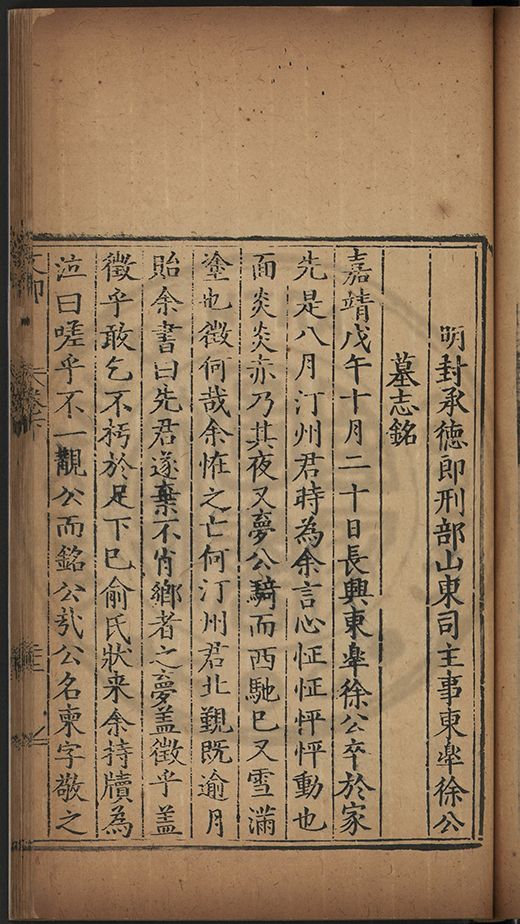 明封承德郎刑部山東司主事東臯徐公
墓志銘
嘉靖戊午十月二十日長興東臯徐公卒於家
先是八月汀州君時為余言心怔怔怦怦動也
面炎炎赤乃其夜又夢公騎而西馳巳又雪滿
塗也徵何哉余恠之亡何汀州君北覲既逾月
貽余書曰先君遂棄不肖鄉者之夢盖徵乎盖
徵乎敢乞不朽於足下巳俞氏狀来余持牘為
泣曰嗟乎不一覯公而銘公㢤公名柬字敬之